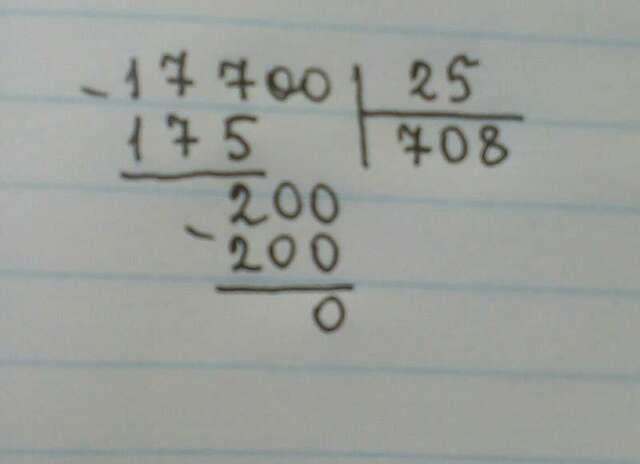 - 17700 | 25
175 | 708
200
- 200
0